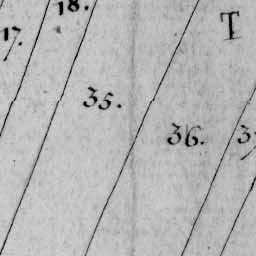 18.
17.
T
35.
36.